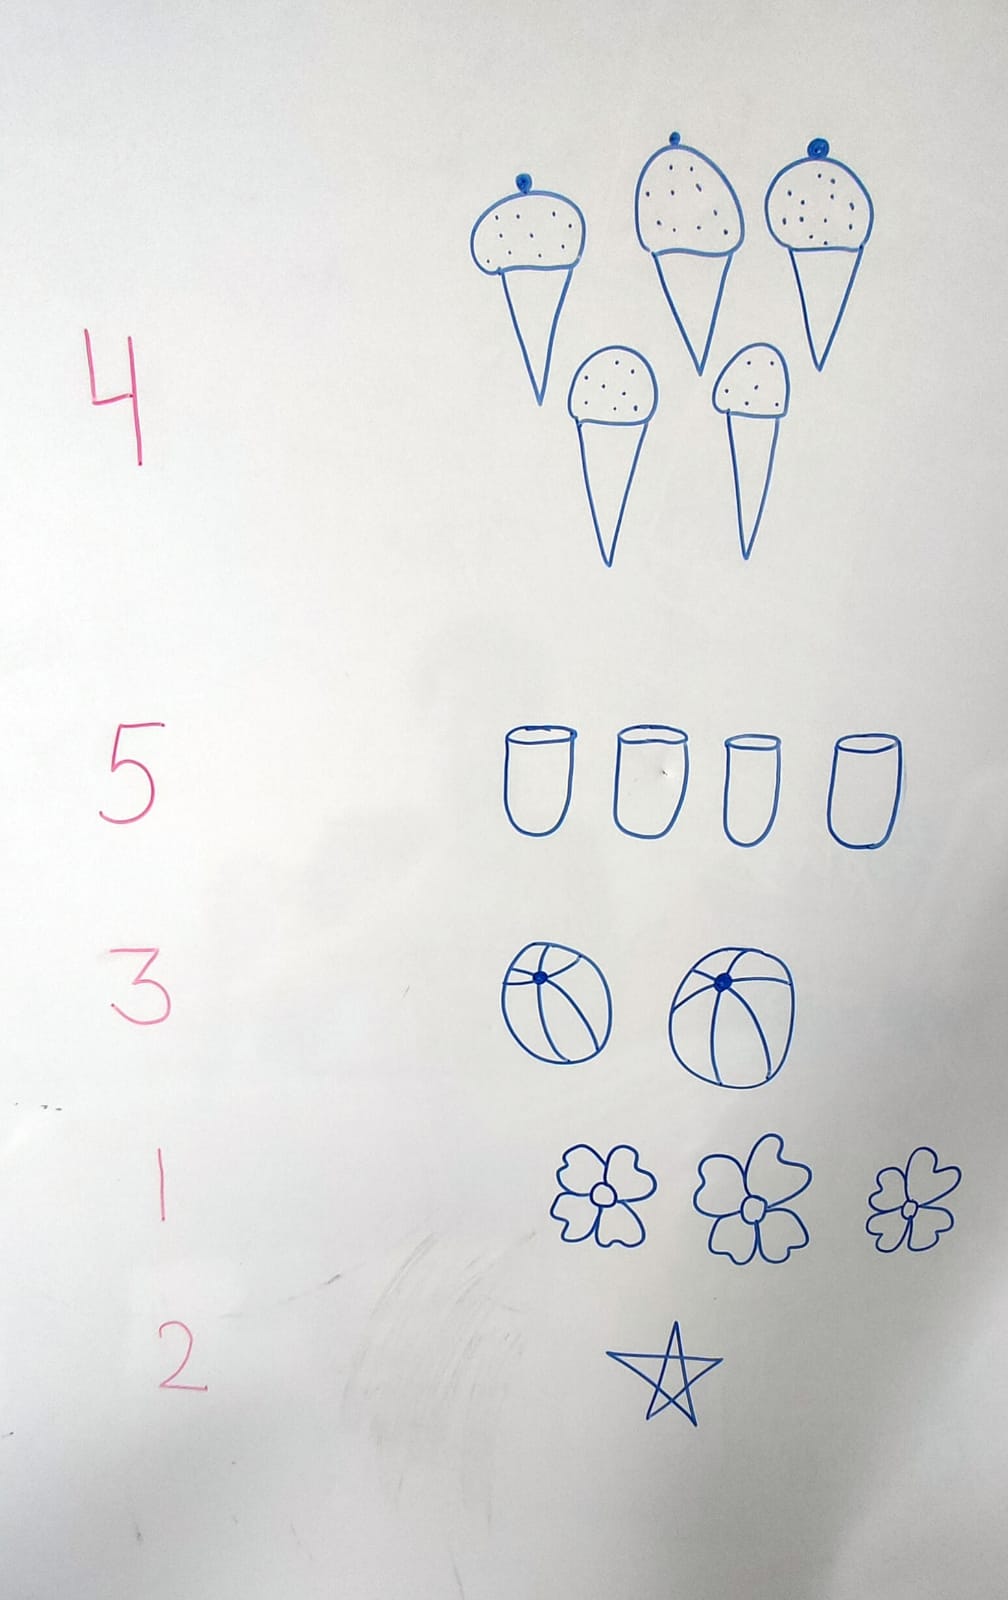 4
5
3
1
2